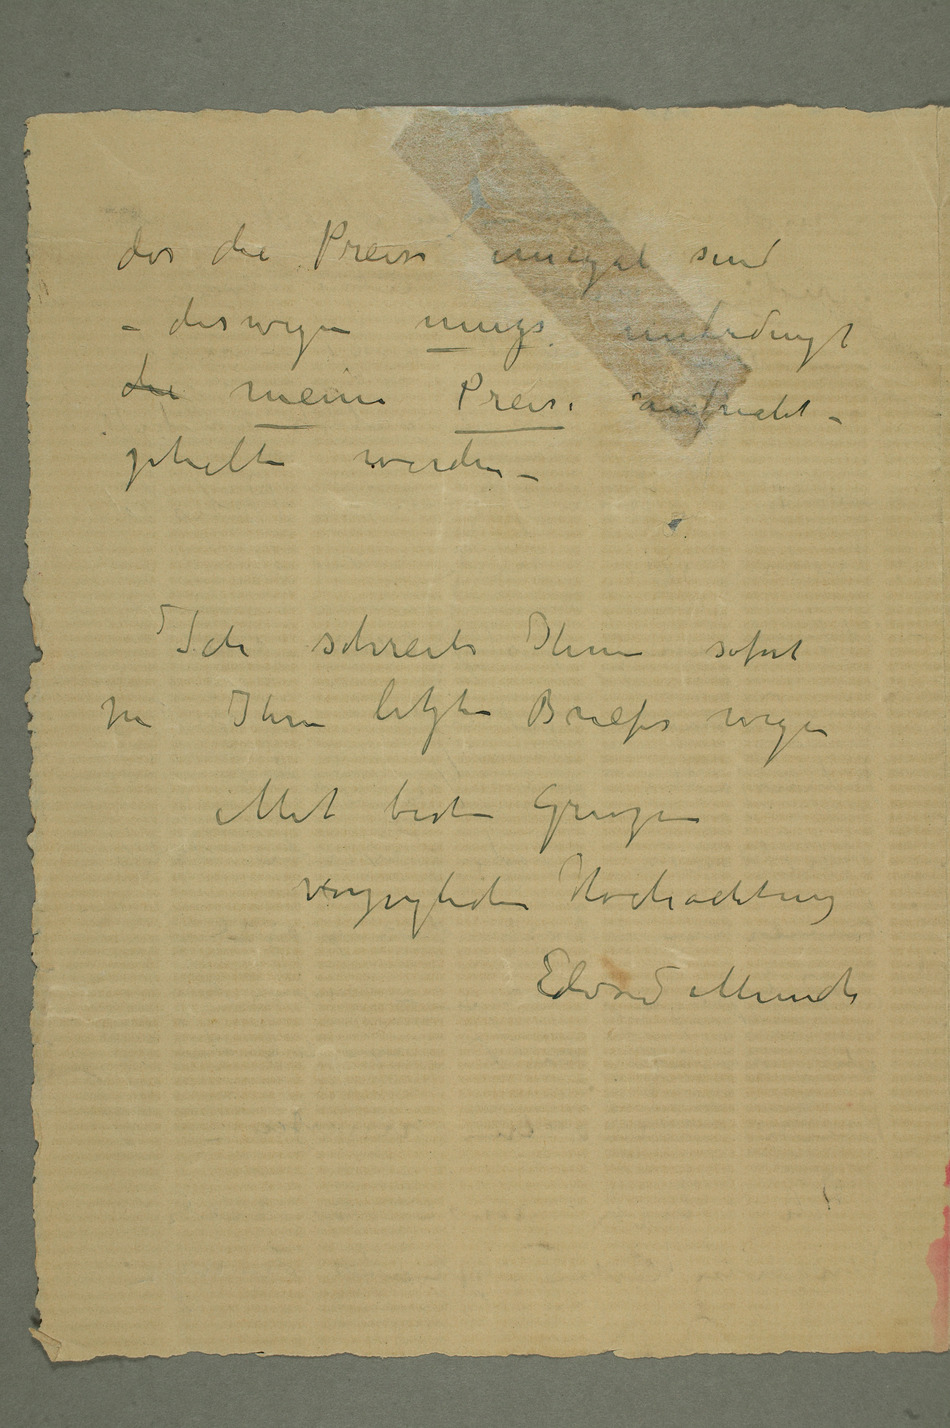 das die Preise unegal sind
– deswegen mugs unbedingt
die meine Preise aufrecht-
gehalten werden –
Ich schreibe Ihnen sofort
Ihren letzten Briefes wegen
Mit besten Grüzen
vorzüglichen Hochachtung
Edvard Munch